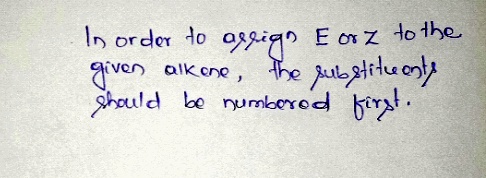 In order to assign E or Z to the
given alkene, the substituents
should be numbered first.